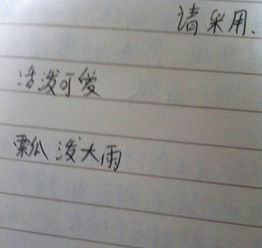 请采用.
活泼可爱
瓢泼大雨